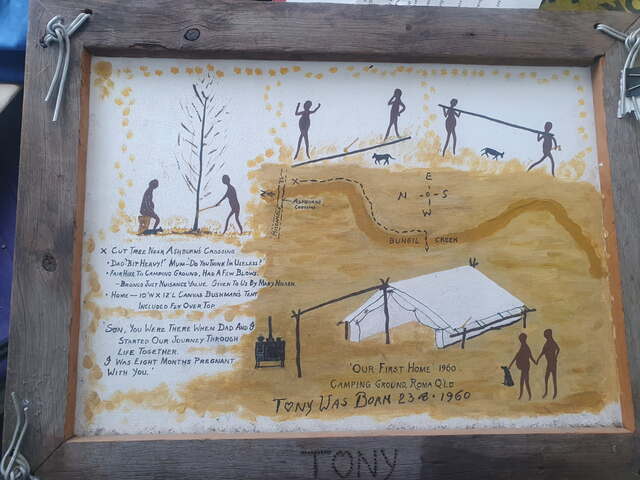 E
N S
W
x
Ashburns
Crossing
Bungil Creek
x Cut Tree Near Ashburn's Crossing
• Dad "Bit Heavy!" Mum - Do You Think I'm Useless?"
• Fair Hike To Camping Ground, Had A Few Blows.
- Broncs Just Nuisance Value. Given To Us By Mary
• Home - 10'W x 12'L Canvas Bushman's Tent
Included Fly Over Top.
'Son, You Were There When Dad And I
Started Our Journey Through
Life Together.
I Was Eight Months Pregnant
With You.'
'Our First Home 1960
Camping Ground, Roma Qld
Tony Was Born 23·8·1960
TONY